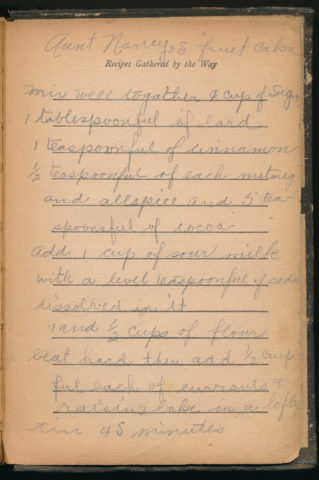 Aunt Nancy's fruit cake
Recipes Gathered by the Way
mix well together 1 cup of Sug
1 tablespoonful of lard
1 teaspoonful of cinnamon
½ teaspoonful of each nutmeg
and allspice and 5 tea-
spoonsful of cocoa
add 1 cup of sour milk
with a level teaspoonful of soda
dissolved in it
1 and ½ cups of flour
beat hard then add ½ cup
ful each of currants &
raisins bake in a
tin 45 minutes